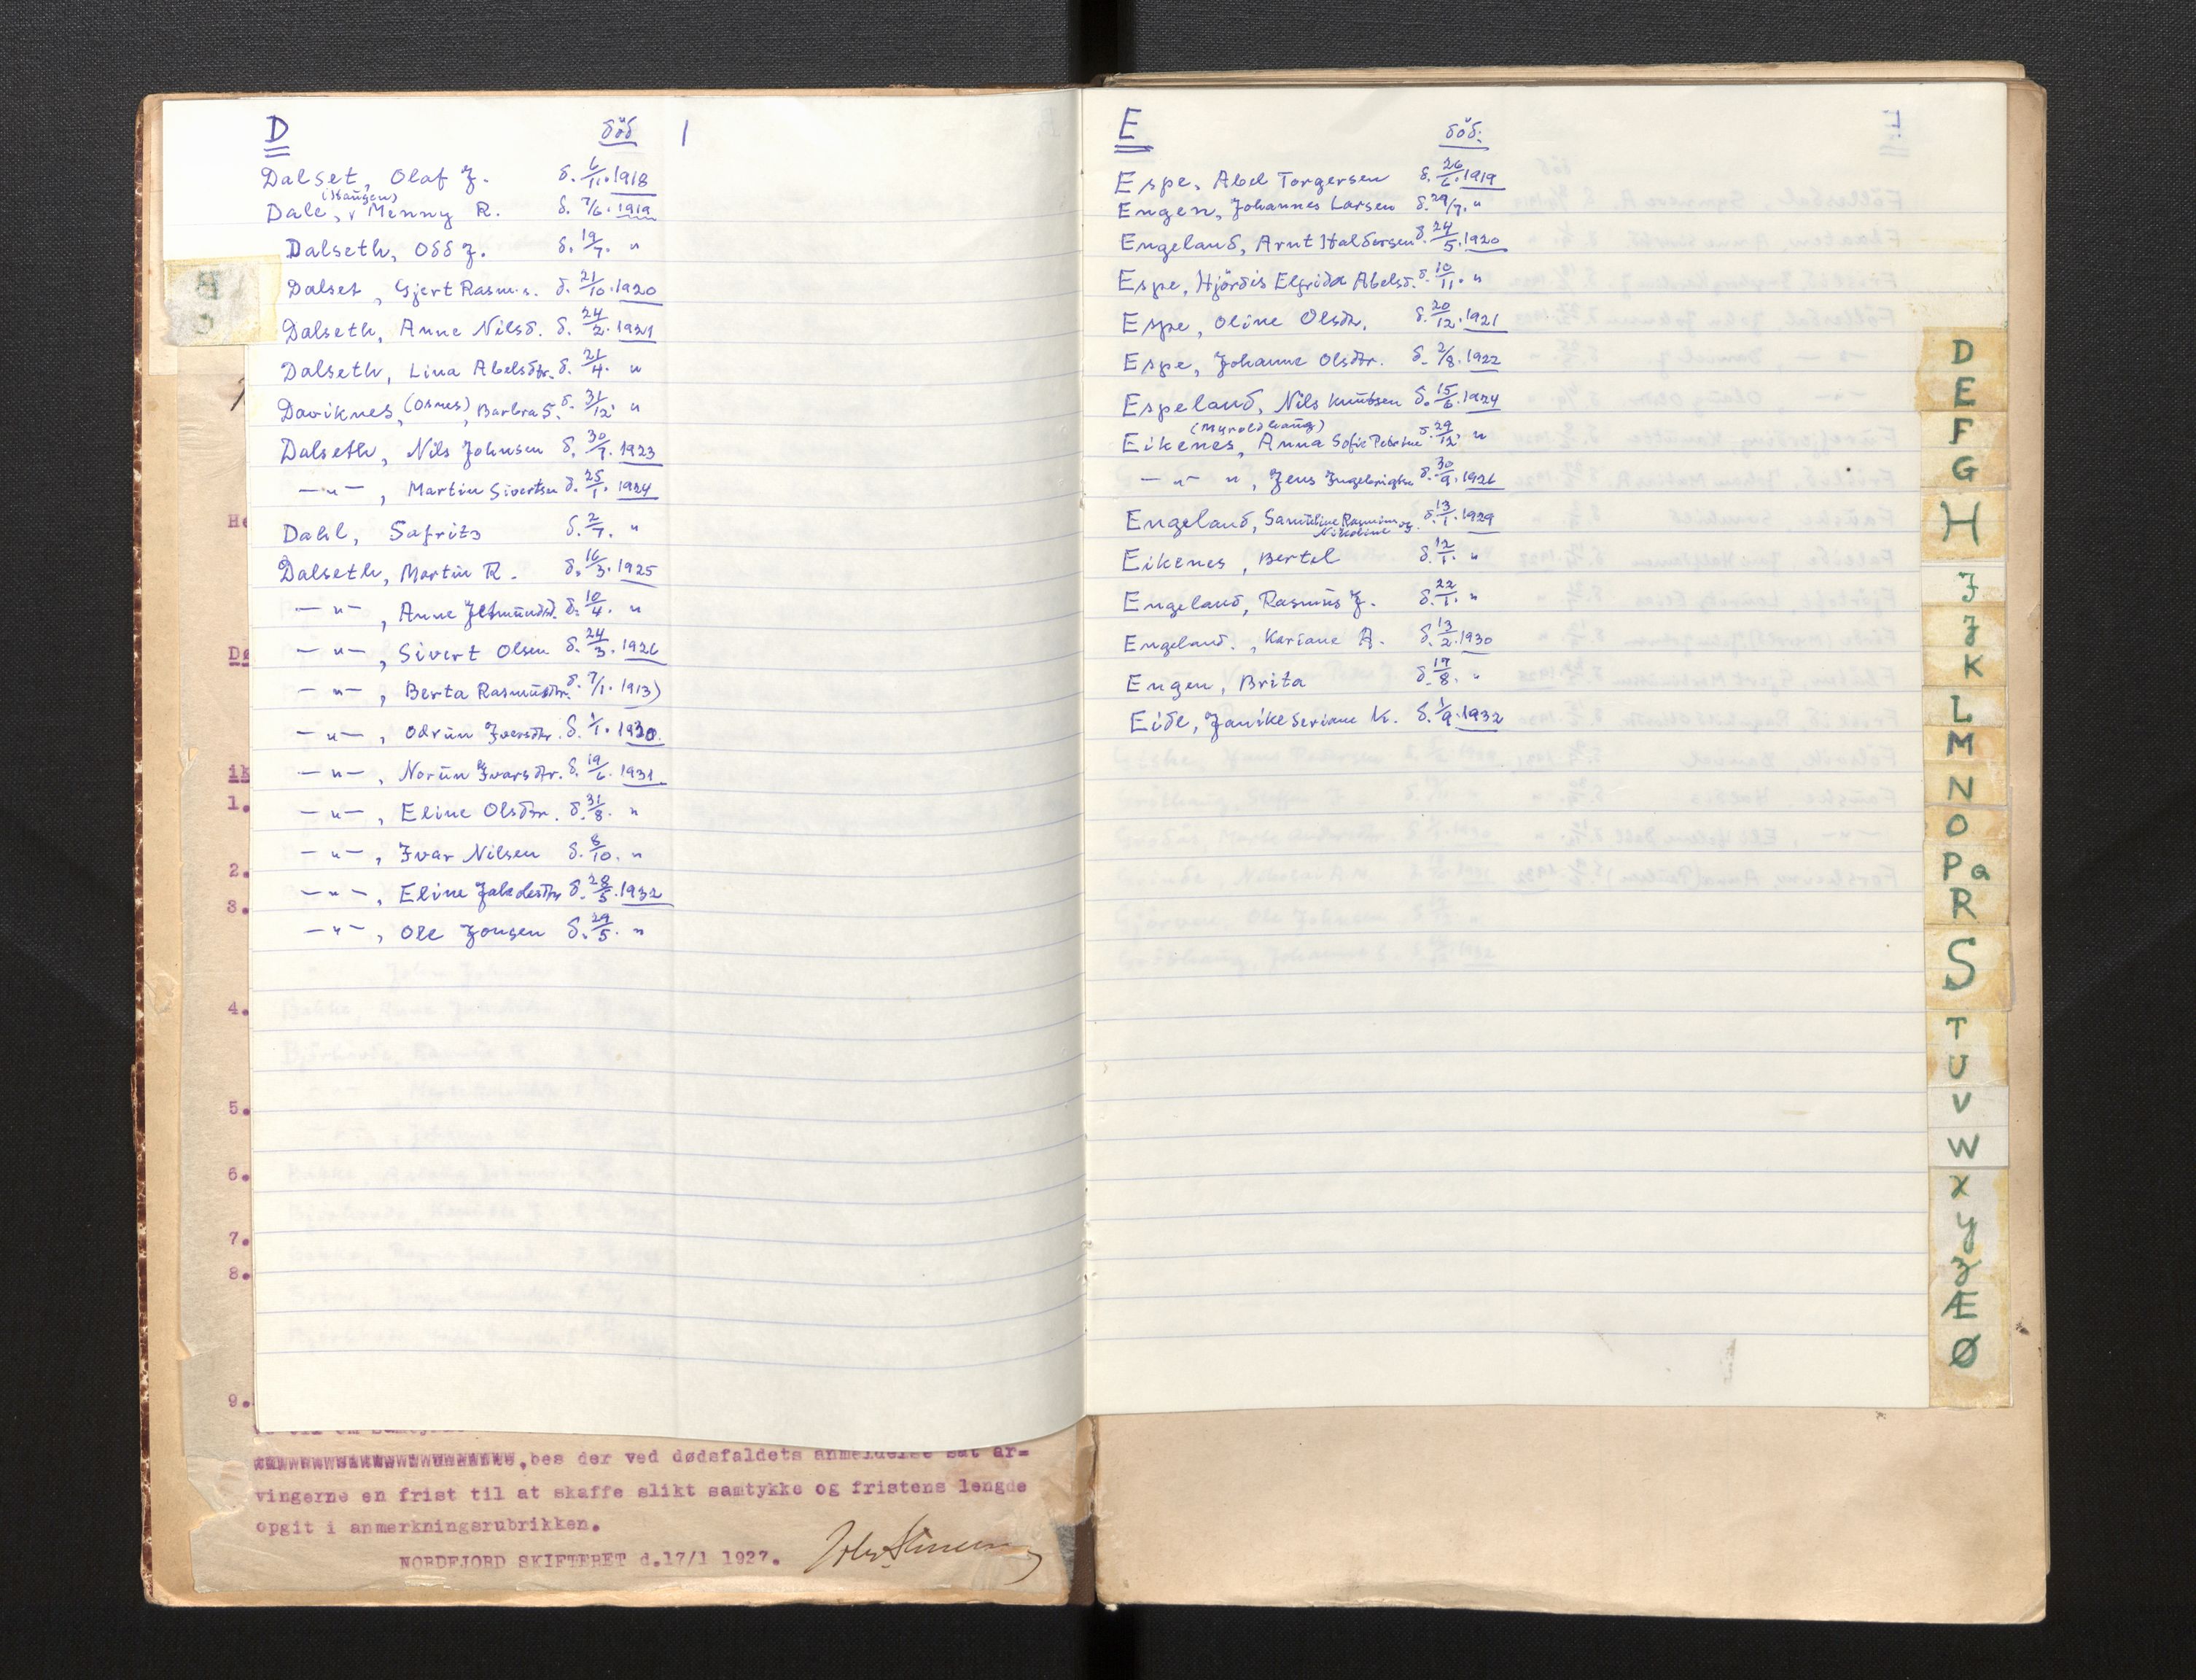 D död
Dalset, Olaf J. d. 6/11. 1918
(Haugen)
Dale, v Menny R. d. 7/6. 1919
Dalseth, Odd J. d. 19/7. "
Dalset, Gjert Rasm.s. d. 21/10. 1920
Dalseth, Anne Nilsd. d. 24/2. 1921
Dalseth, Lina Abelsdtr. d. 21/4. "
Daviknes, (Osnes), Barbra S. d. 31/12. "
Dalseth, Nils Johnsen d. 30/7. 1923
—"—, Martin Sivertsen d. 25/1. 1924
Dahl, Safrits d. 2/7. "
Dalseth, Martin R. d. 16/3. 1925
—"—, Anne d. 10/4. "
—"—, Sivert Olsen d. 24/3. 1926
—"—, Berta Rasmusdtr. d. 7/1. 1913)
—"—, Odrun Iversdtr. d. 1/1. 1930.
—"—, Norun Ivarsdtr. d. 19/6. 1931
—"—, Eline Olsdtr. d. 31/8. "
—"—, Ivar Nilsen d. 8/10. "
—"—, Eline d. 28/5. 1932
—"—, Ole Jonsen d. 29/5. "
He
Dø
ik
1.
2.
3.
4.
5.
6.
7.
8.
9.
bes der ved dødsfaldets anmeldelse sat ar=
vingerne en frist til at skaffe slikt samtykke og fristens lengde
opgit i anmerkningsrubrikken.
NORDFJORD SKIFTERET d.17/1 1927.
E död.
Espe, Abel Torgersen d. 26/6. 1919
Engen, Johannes Larsen d. 29/7. "
Engeland, Arnt Haldorsen d. 24/5. 1920
Espe, Hjördis Elfrida Abelsd. d. 10/11. "
Espe, Oline Olsdtr. d. 20/12. 1921
Espe, Johanne Olsdtr. d. 2/8. 1922
Espeland, Nils Knutsen d. 15/6. 1924
(Myroldhaug)
Eikenes, Anna Sofie Petrine d. 29/12. "
—"— ", Jens Ingebrigtsn d. 30/9. 1926
Engeland, Samueline Rasmine og d. 13/1. 1929
Nikoline
Eikenes, Bertel d. 12/1. "
Engeland, Rasmus J. d. 22/1. "
Engeland., Kariane A. d. 13/2. 1930
Engen, Brita d. 17/8. "
Eide, Janike Seriane K. d. 1/9. 1932
D
E
F
G
H
I
J
K
L
M
N
O
P Q
R
S
T
U
V
W
X
Y
Z
Æ
Ø